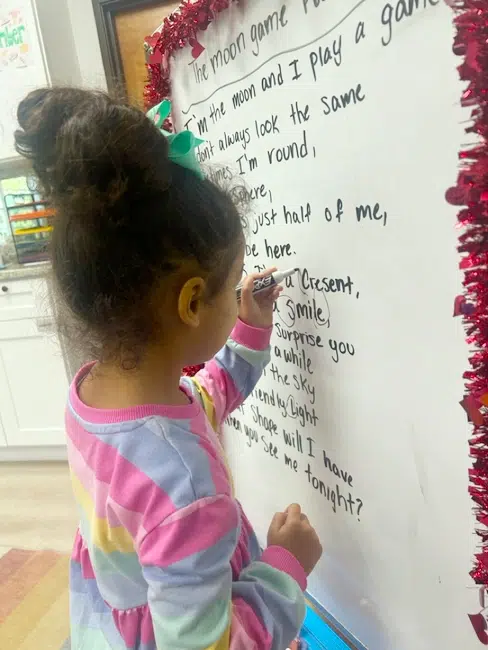 The moon game
I'm the moon and I play a game
dont always look the same
I'm round,
just half of me,
be here.
a Cresent,
a Smile,
surprise you
a while
the sky
Light
Shape will I have
you see me tonight?
EXPO